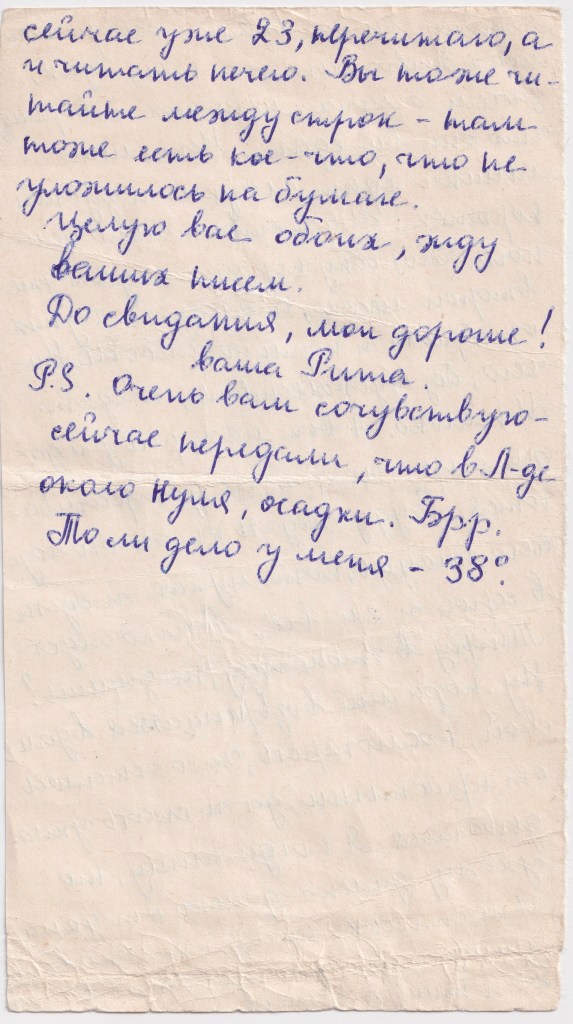 сейчас уже 23, перечитаю, а
и читать нечего. Вы тоже чи-
тайте между строк - там
тоже есть кое-что, что не
уложилось на бумаге.
Целую вас обоих, жду
ваших писем.
До свидания, мои дорогие!
ваша Рита.
P.S. Очень вам сочувствую-
сейчас передали, что в Л-де
около нуля, осадки. Брр.
То ли дело у меня - 38°.